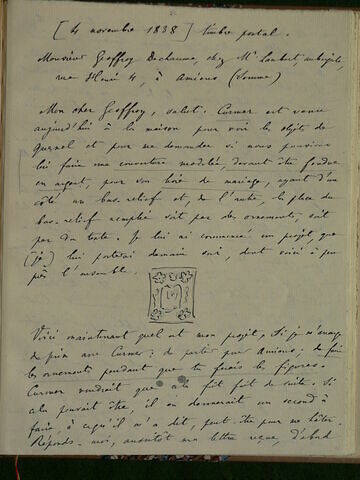 [4 novembre 1838] timbre postal.
Monsieur Geoffroy Dechaume, chez Mr Lambert, aubergiste,
rue Henri 4, à Amiens (Somme)
Mon cher Geoffroy, salut. Curmer est venu
aujourd'hui à la maison pour voir les objets de
et pour me demander si nous pourrions
lui faire une couverture modelée, devant être fondue
en argent, pour son livre de mariage, ayant d'un
côté un bas-relief et, de l'autre, la place du
bas-relief remplie soit par des ornements, soit
par du texte. Je lui ai commencé un projet, que
(je) lui porterai demain soir, dont voici à peu
près l'ensemble.
Voici maintenant quel est mon projet. Si je m'arrange
de prix avec Curmer : de partir pour Amiens ; de faire
les ornements pendant que tu ferais les figures.
Curmer voudrait que ce fût fait de suite. Si
cela pouvait être, il en donnerait un second à
faire, à ce qu'il m'a dit, peut-être pour me hâter.
Réponds-moi, aussitôt ma lettre reçue, d'abord